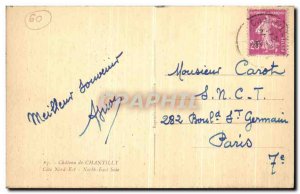 60
Meilleur Souvenir
Monsieur Carot
S.N.C.T.
282 Boul.d St Germain
Paris
7e
27. - Château de CHANTILLY
Côté Nord-Est - North-East Side